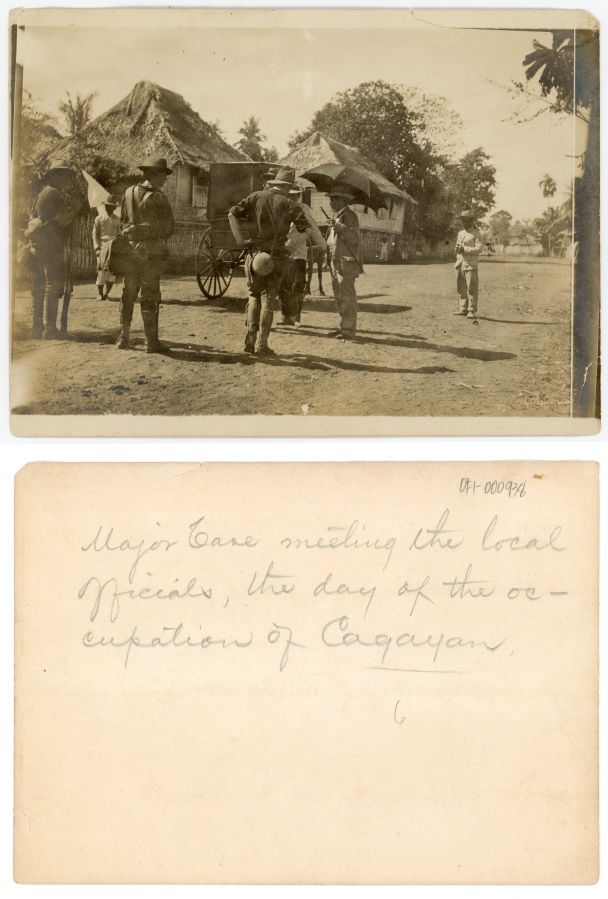 041-000938
Major Case meeting the local
officials, the day of the oc-
cupation of Cagayan.
6